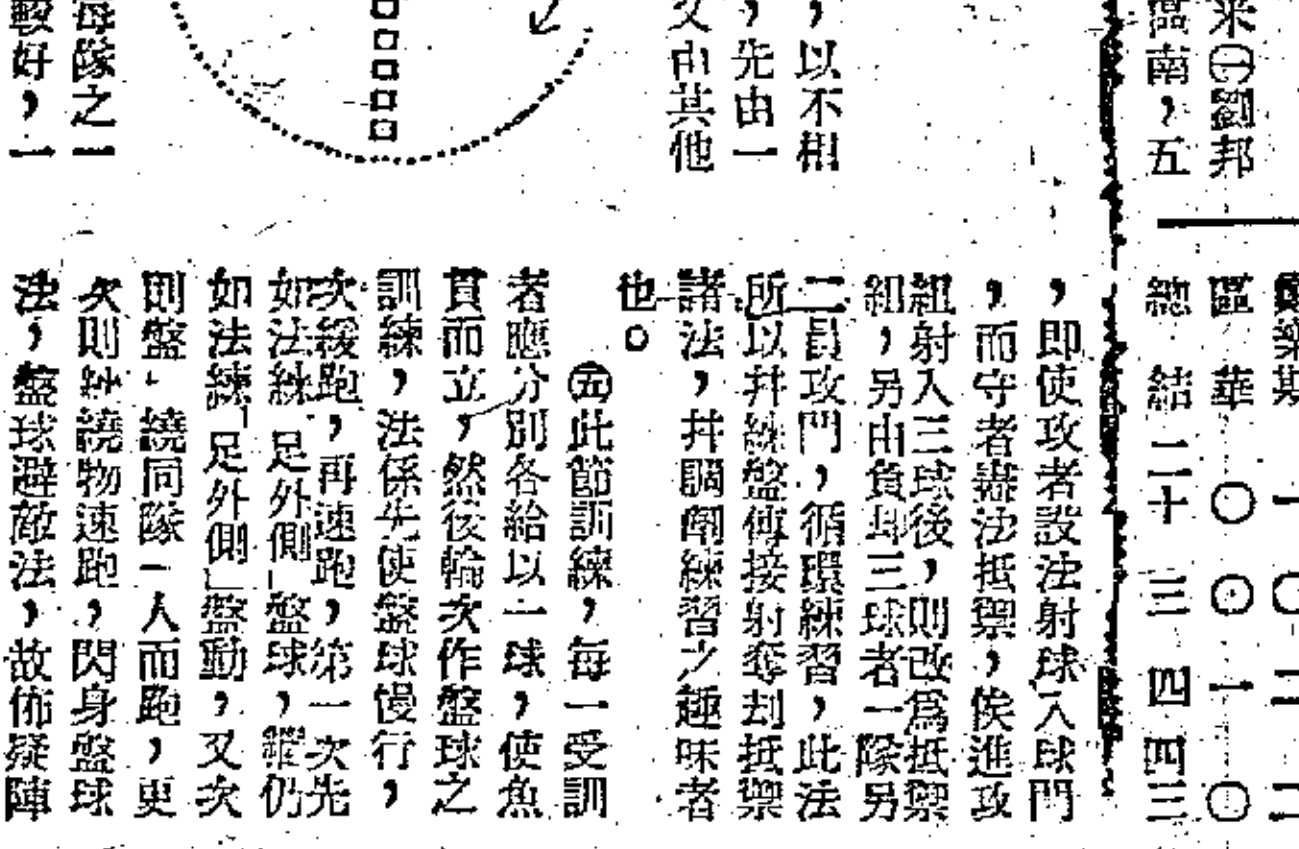 来㊀劉邦
區南，五
，以不相
，先由一
又由其他
每隊之一
較好，一
區華〇〇一〇
總結二十三四四三
，即使攻者設法射球入球門
，而守者盡法抵禦，俟進攻
組射入三球後，則改爲抵禦
組，另由負却三球者一隊另
二員攻門，循環練習，此法
所以并練盤傳接射奪刦抵禦
諸法，并調劑練習之趣味者
也。
㊄此節訓練，每一受訓
者應分別各給以一球，使魚
貫而立，然後輪次作盤球之
訓練，法係先使盤球慢行，
次緩跑，再速跑，第一次先
如法練「足外側」盤球，繼仍
如法練「足外側」盤動，又次
則盤繞同隊一人而跑，更
次則繞物速跑，閃身盤球
法，盤球避敵法，故佈疑陣